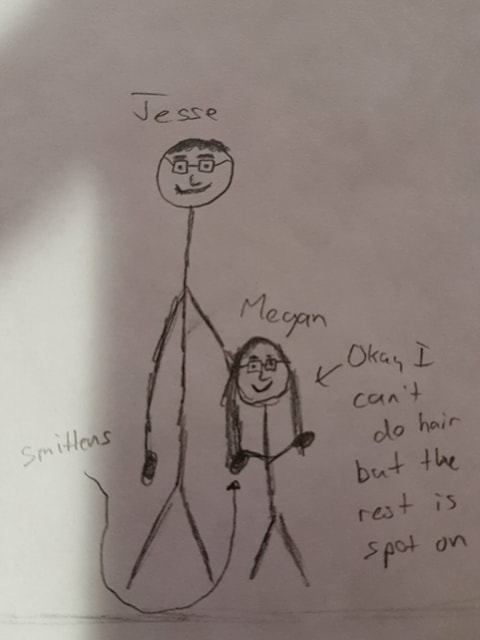 Jesse
Megan
Okay I
can't
do hair
but the
rest is
spot on
Smittens